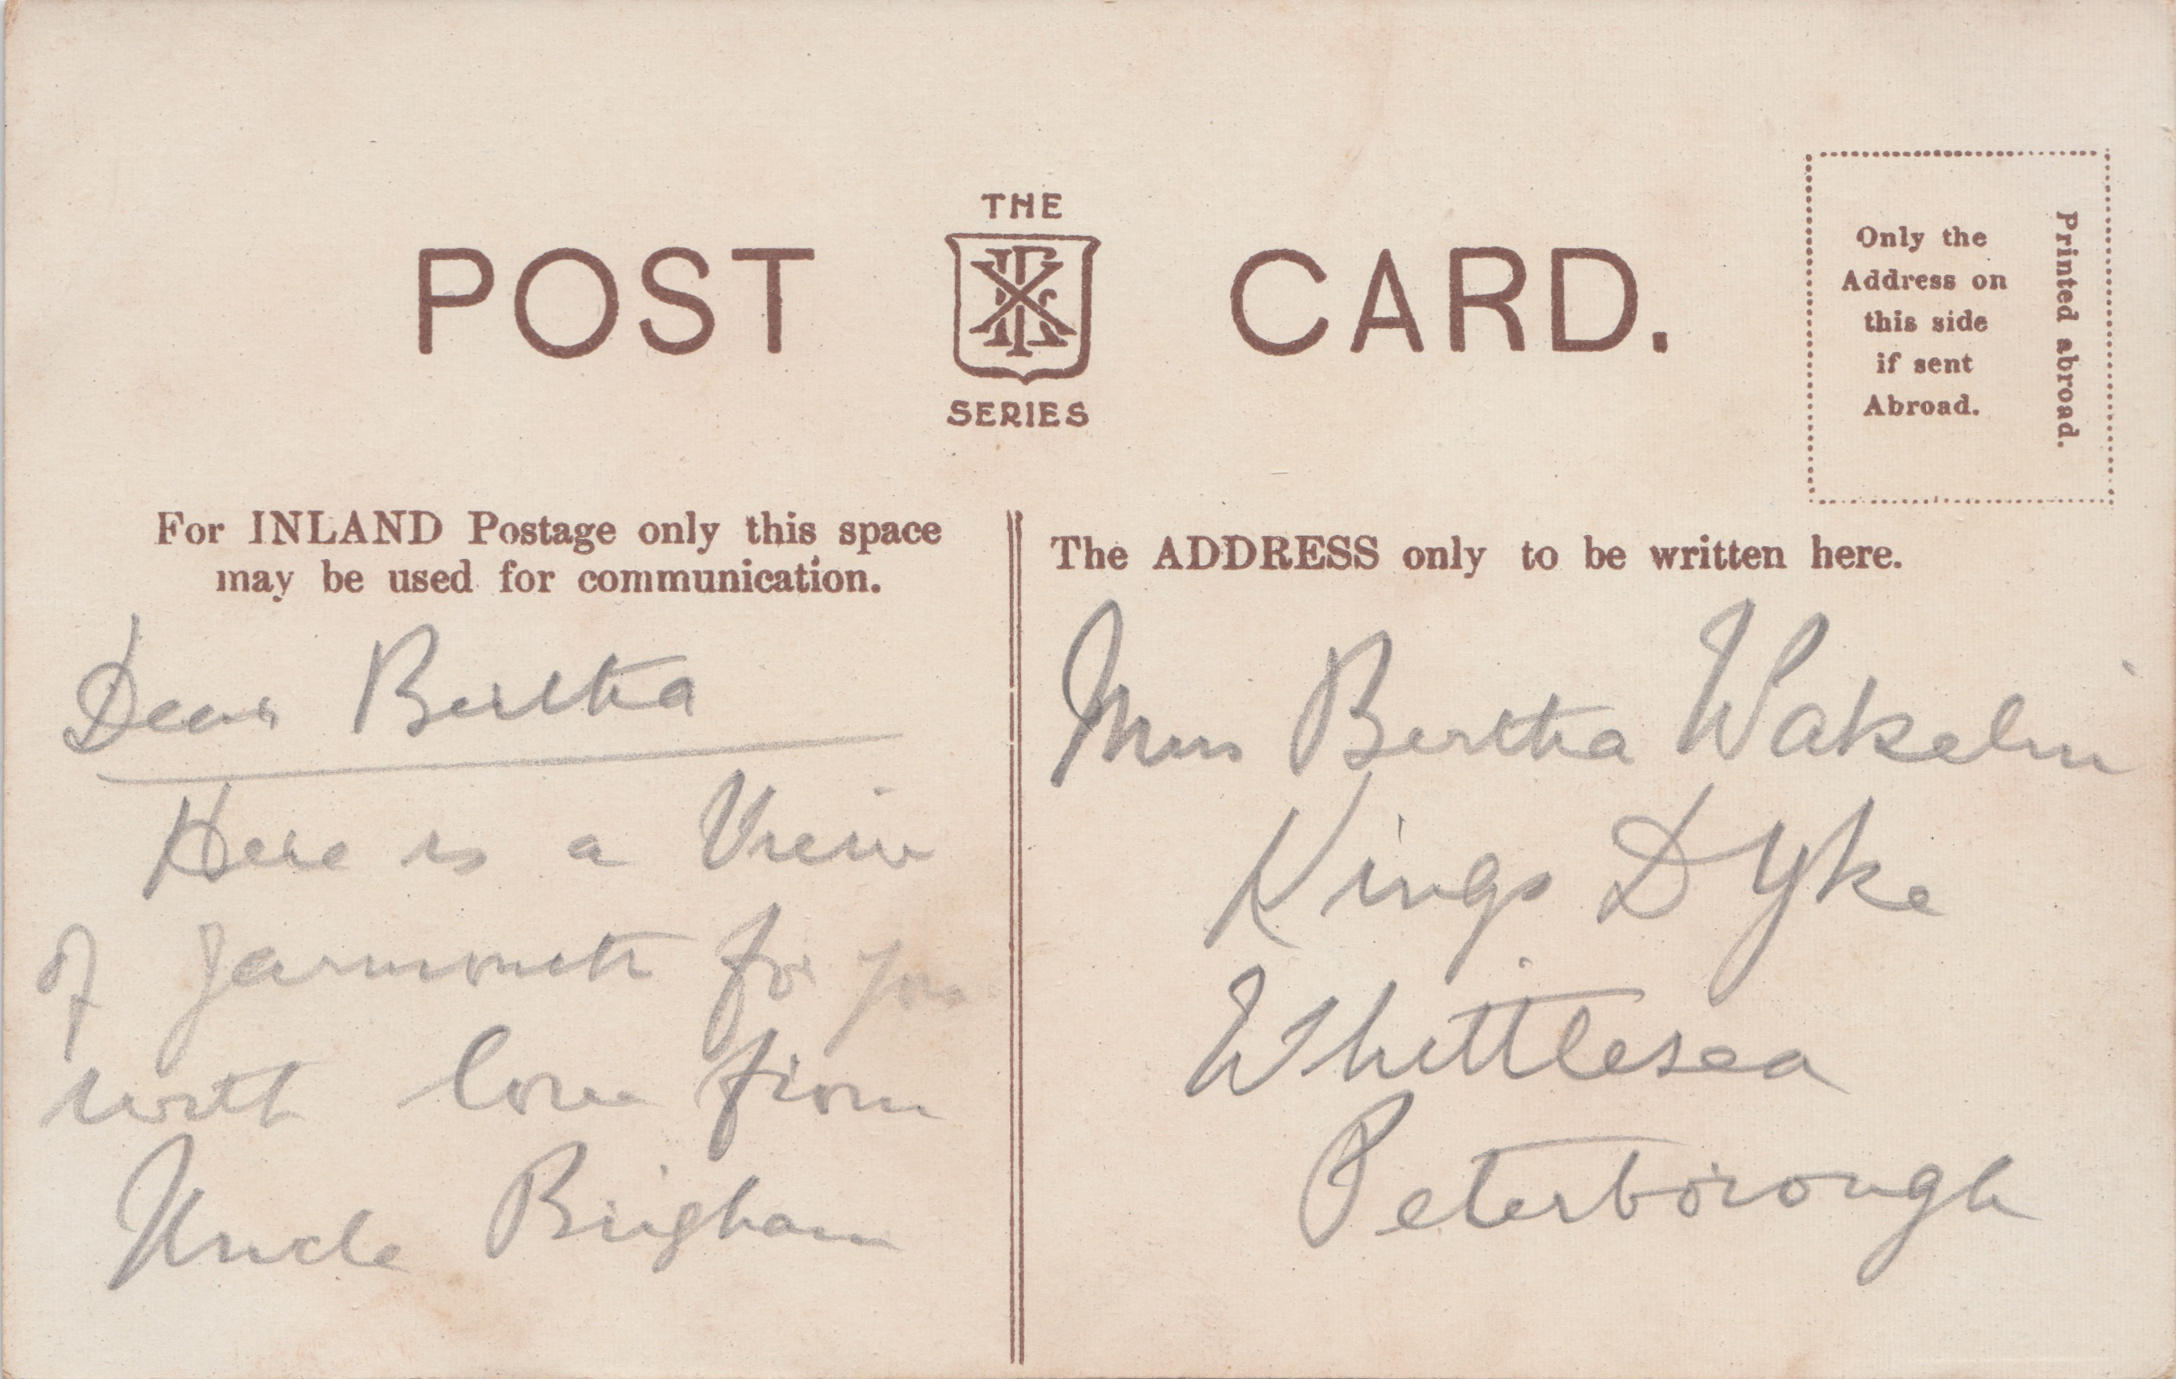 POST CARD.
THE
SERIES
Only the
Address on
this side
if sent
Abroad.
Printed abroad.
For INLAND Postage only this space
may be used for communication.
Dear Bertha
Here is a View
of Yarmouth for you
with love from
Uncle Bingham
The ADDRESS only to be written here.
Miss Bertha Wakelin
Kings Dyke
Whittlesea
Peterborough